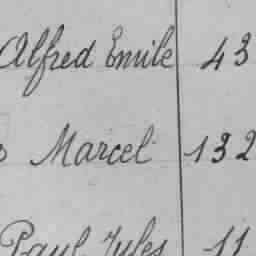 Alfred Emile 43
Marcel 132
Paul Jules 11